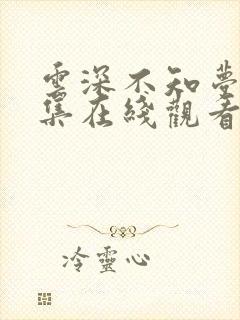 雲深不知夢
集在綫觀看
冷靈心